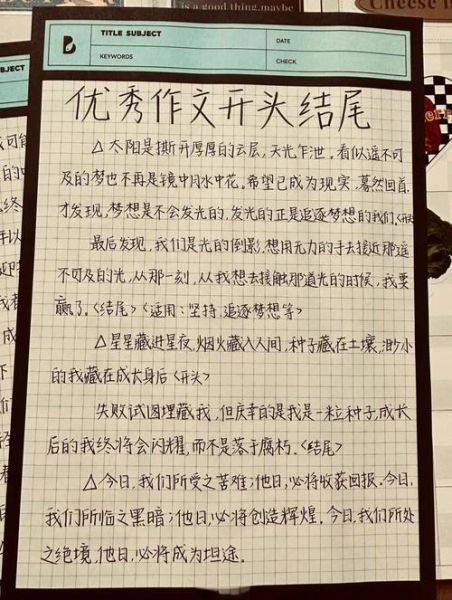 is a good thing.maybe
Cheese
TITLE SUBJECT
DATE
KEYWORDS
CHECK
优秀作文开头结尾
△太阳是撕开厚厚的云层,天光乍泄.看似遥不可
及的梦也不再是镜中月水中花,希望已成为现实.蓦然回首,
才发现,梦想是不会发光的,发光的正是追逐梦想的我们.
最后发现,我们是光的倒影,想用无力的手去接近那遥
不可及的光,从那一刻,从我想去接触那道光的时候,我要
赢了.<结尾><适用:坚持.追逐梦想等>
△星星藏进星夜,烟火藏入人间,种子藏在土壤,渺小
的我藏在成长身后<开头>
失败试图埋藏我,但庆幸的是我是一粒种子,成长
后的我终将会闪耀,而不是落于腐朽.<结尾>
△今日,我们所受之苦难;他日,必将收获回报.今日,
我们所临之黑暗;他日,必将创造辉煌.今日,我们所处
之绝境,他日,必将成为坦途.